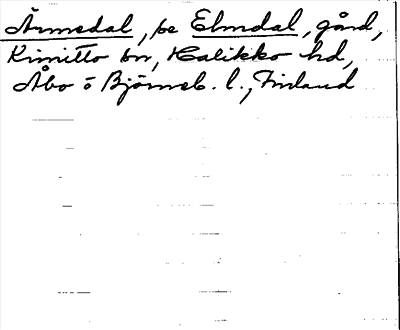 Ärmedal, se Elmdal, gård,
Kimitto sn, Halikko hd,
Åbo o Björneb. l., Finland